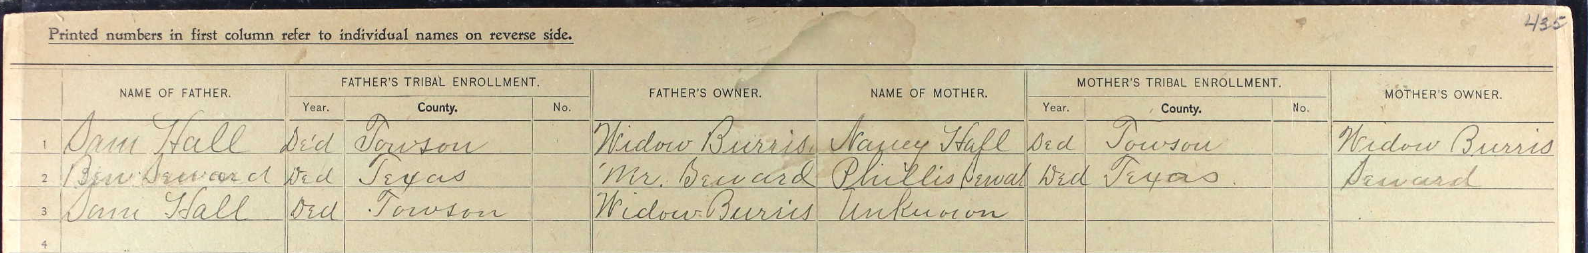 435
Printed numbers in first column refer to individual names on reverse side.
NAME OF FATHER. FATHER'S TRIBAL ENROLLMENT. FATHER'S OWNER. NAME OF MOTHER. MOTHER'S TRIBAL ENROLLMENT. MOTHER'S OWNER.
Year. County. No. Year. County. No.
1 Sam Hall De'd Towson Widow Burris Nancy Hall Ded Towson Widow Burris
2 Ben Seward Ded Texas Mr. Seward Phillis Ded Texas Seward
3 Sam Hall Ded Towson Widow Burris Unknown
4